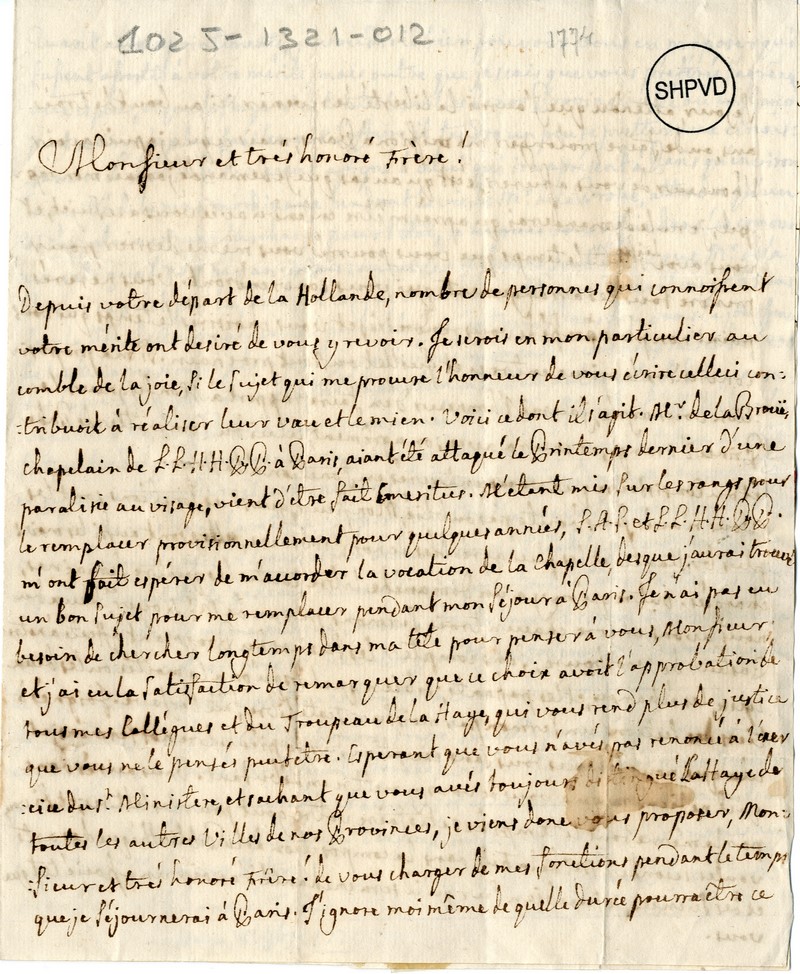 1025-1321-012
1774
SHPVD
Monsieur et trés honoré Frère!
Depuis votre départ de la Hollande, nombre de personnes qui connoissent
votre mérite ont desiré de vous y revoir. Je serois en mon particulier au
comble de la joie, si le sujet qui me procure l'honneur de vous écrire celleci con=
=tribuoit à réaliser leur vœu et le mien. Voici ce dont il s'agit. Mr. de la Brouë,
chapelain de L.L.H.H.P.P. à Paris, aiant été attaqué le Printemps dernier d'une
paralisie au visage, vient d'être fait Emeritus. M'étant mis sur les rangs pour
le remplacer provisionnellement pour quelques années, S.A.S. et L.L.H.H.P.P.
m'ont fait espérer de m'accorder la vocation de la Chapelle, des que j'aurai trouvé
un bon sujet pour me remplacer pendant mon séjour à Paris. Je n'ai pas eu
besoin de chercher longtemps dans ma tête pour penser à vous, Monsieur,
et j'ai eu la satisfaction de remarquer que ce choix avoit l'approbation de
tous mes Collégues et du Troupeau de la Haye, qui vous rend plus de justice
que vous ne le pensés peutetre. Esperant que vous n'avés pas renoncé à l'exer
=cice du St. Ministere, et sachant que vous avés toujours distingué La Haye de
toutes les autres Villes de nos Provinces, je viens donc vous proposer, Mon=
=sieur et trés honoré Frère! de vous charger de mes fonctions pendant le temps
que je séjournerai à Paris. J'ignore moi même de quelle durée pourra être ce